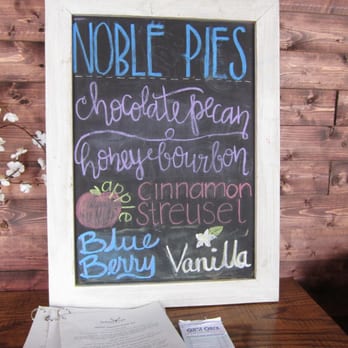 NOBLE PIES
chocolate pecan
honey & bourbon
apple cinnamon
streusel
Blue
Berry Vanilla
GUEST CHECK